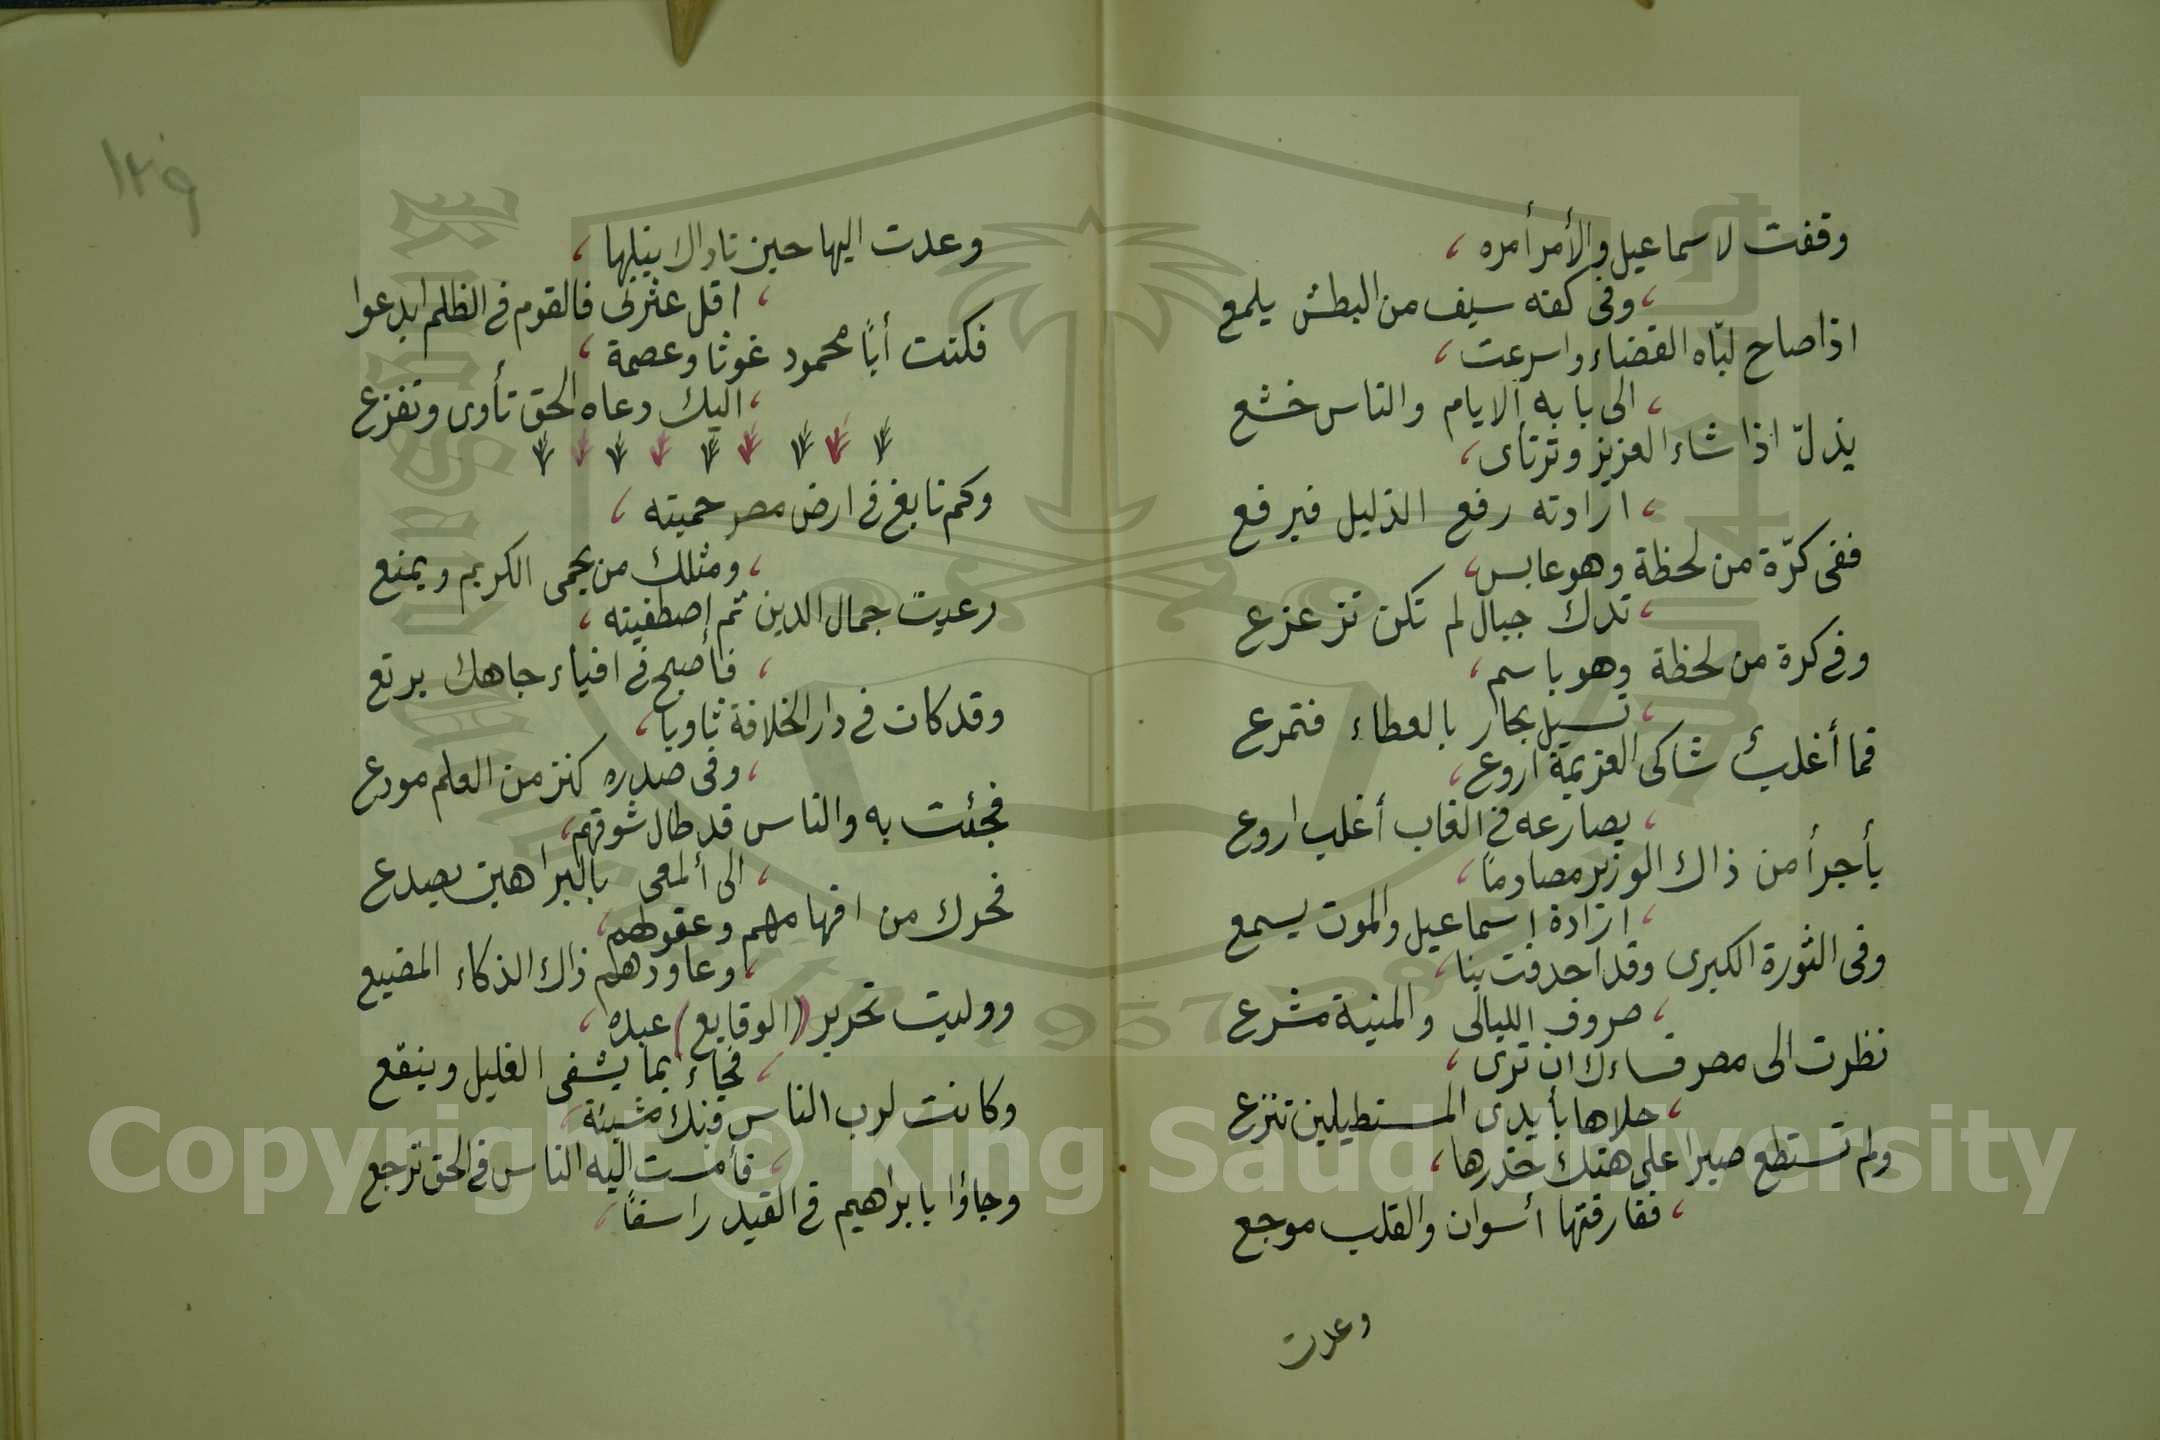 وقفت لاسماعيل والأمر أمره
وفى كفه سيف من البطش يلمع
اذا صاح لبّاه القضاء واسرعت
الى بابه الايام والناس خشع
يذلّ اذا شاء العزيز وترتأى
ارادته رفع الذليل فيرفع
ففى كرّة من لحظة وهو عابس
تدك جبال لم تكن تزعزع
وفى كرة من لحظة وهو باسم
تسيل بحار بالعطاء فتمرع
فما أغلب شاكى العزيمة اروع
يصارعه فى الغاب أغلب اروع
بأجرأ من ذاك الوزير مصادمًا
ارادة اسماعيل والموت يسمع
وفى الثورة الكبرى وقد احدقت بنا
صروف الليالى والمنية مشرع
نظرت الى مصر فساءك ان ترى
حلاها بأيدى المستطيلين تنزع
ولم تستطع صبرا على هتك خدرها
ففارقتها أسوان والقلب موجع
وعدت
١٢٩
وعدت اليها حين ناداك نيلها
اقل عثرتى فالقوم فى الظلم ابدعوا
فكنت أبًا محمود غوثا وعصمة
اليك دعاه الحق تأوى وتفزع
وكم نابغ فى ارض مصر حميته
ومثلك من يحمى الكريم ويمنع
رعيت جمال الدين ثم إصطفيته
فأصبح فى افياء جاهك يرتع
وقد كان فى دار الخلافة ثاويا
وفى صدره كنز من العلم مودع
فجئت به والناس قد طال شوقهم
الى ألمعى بالبراهين يصدع
فحرك من افهامهم وعقولهم
وعاودهم ذاك الذكاء المضيع
ووليت تحرير (الوقايع) عبده
فجاء بما يشفى الغليل وينقع
وكانت لرب الناس فيك مشيئة
فأمست اليه الناس فى الحق ترجع
وجاؤا بابراهيم فى القيد راسفًا
Copyright © King Saud University
1957